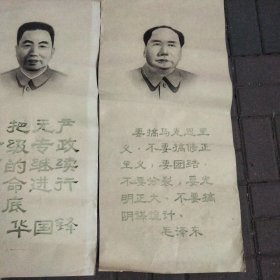 把无产
级专政
的继续
命进行
底
华国锋
要搞马克思主
义，不要搞修正
主义；要团结，
不要分裂；要光
明正大，不要搞
阴谋诡计。
毛泽东